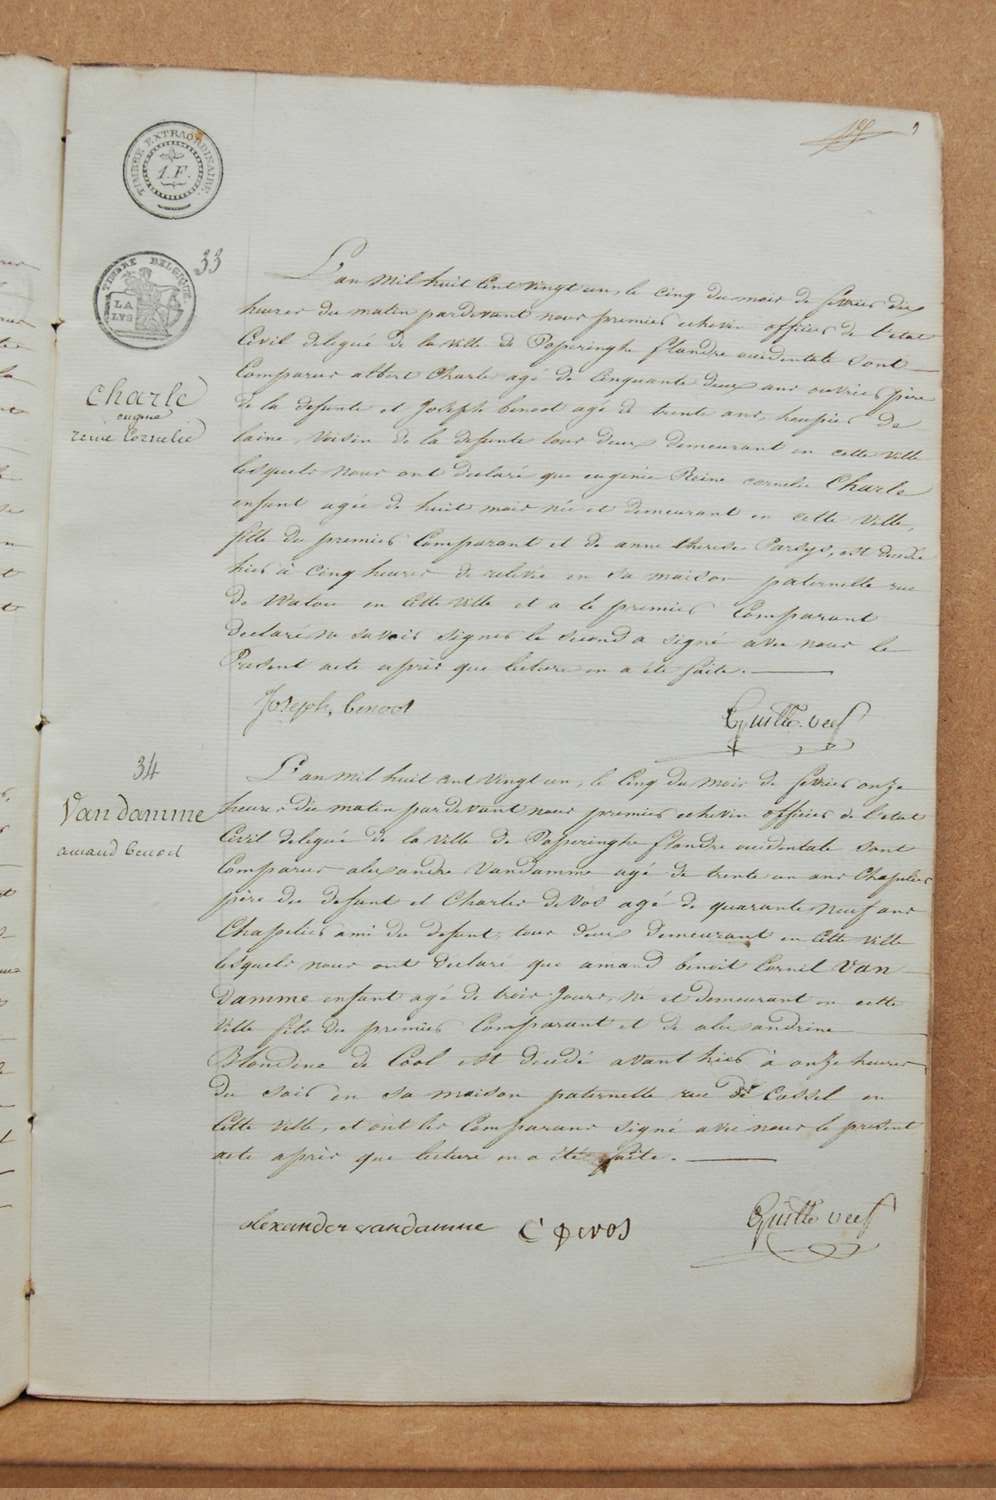 TIMBRE EXTRAORDINAIRE.
1.F.
TIMBRE BELGIQUE
LA
LYS
33
Charle
eugine
reine Cornelie
L'an mil huit Cent vingt un, le cinq du mois de fevrier dix
heures du matin pardevant nous premier echevin officier de l'etat
Civil delegué de la ville de Poperinghe flandre occidentale sont
Comparus albert Charle agé de Cinquante deux ans ouvrier père
de la defunte et Joseph benoot agé de trente ans, houpier de
laine, voisin de la defunte tous deux demeurant en cette ville
lesquels nous ont declaré que eugénie Reine cornelie Charle
enfant agée de huit mois née et demeurant en cette ville,
fille du premier Comparant et de anne therese Parsys, est decedée
hier à Cinq heures de relevée en sa maison paternelle rue
de Watou en Cette ville et a le premier Comparant
declaré ne savoir signer le second a signé avec nous le
Present acte après que lecture en a été faite.
Joseph, benoot
34
Vandamme
amand benoit
L'an mil huit cent vingt un, le cinq du mois de fevrier onze
heures du matin pardevant nous premier echevin officier de l'etat
Civil delegué de la ville de Poperinghe flandre occidentale sont
Comparus alexandre Vandamme agé de trente un ans Chapelier
père du defunt et Charles de Vos agé de quarante neuf ans
Chapelier ami du defunt, tous deux demeurant en Cette ville
lesquels nous ont declaré que amand benoit Cornil Van
Damme enfant agé de trois Jours, né et demeurant en cette
ville fils du premier Comparant et de alexandrine
de Cool est decedé avant hier à onze heures
du soir en sa maison paternelle rue de Cassel en
Cette ville, et ont les Comparans signé avec nous le present
acte après que lecture en a été faite.
alexander vandamme C Devos